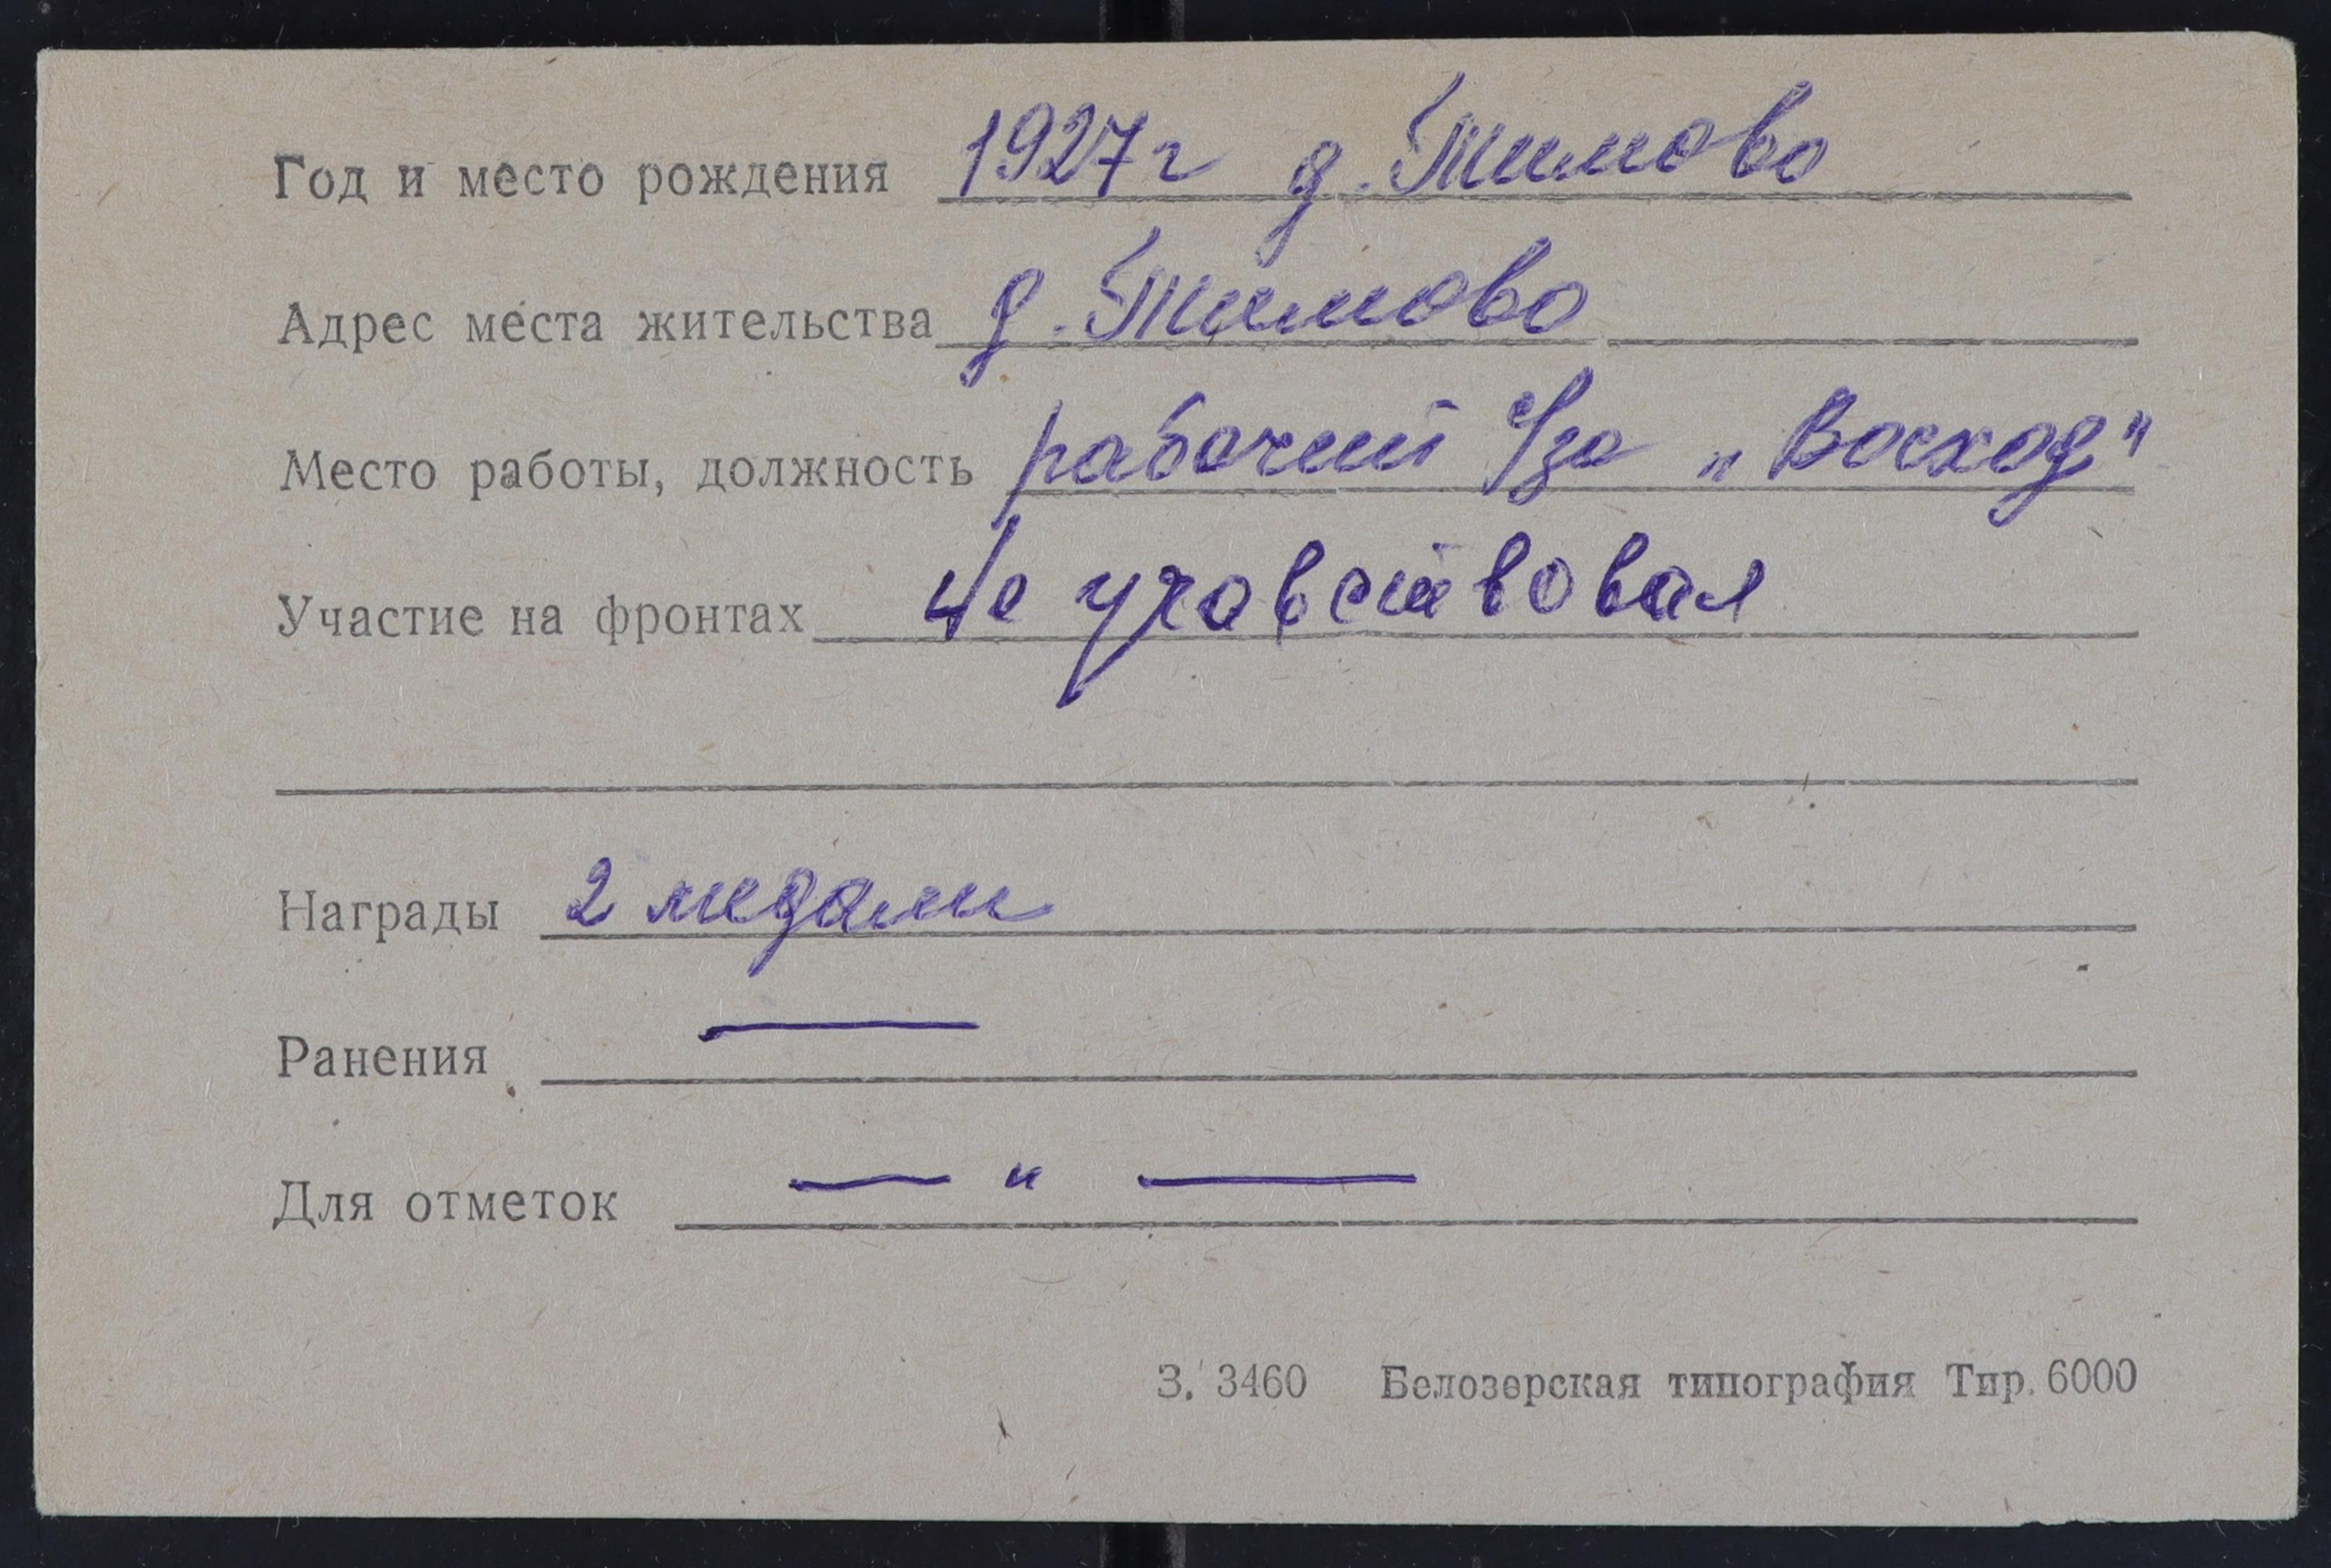 Год и место рождения 1927г д. Тимово
Адрес места жительства д. Тимово
Место работы, должность рабочий с/за „Восход"
Участие на фронтах Не учавствовал
Награды 2 медали
Ранения —
Для отметок — " —
З. 3460 Белозерская типография Тир. 6000